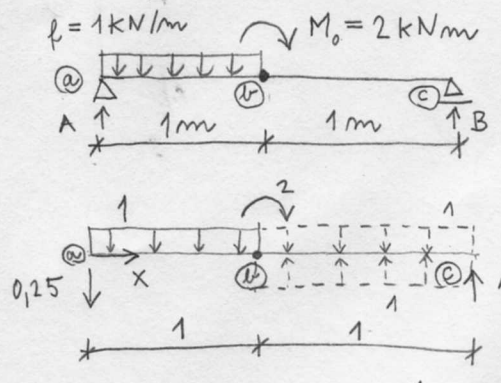 f = 1kN/m M₀ = 2kNm
a b c
A 1m 1m B
1 2 1
a x b c
0,25 1
1 1